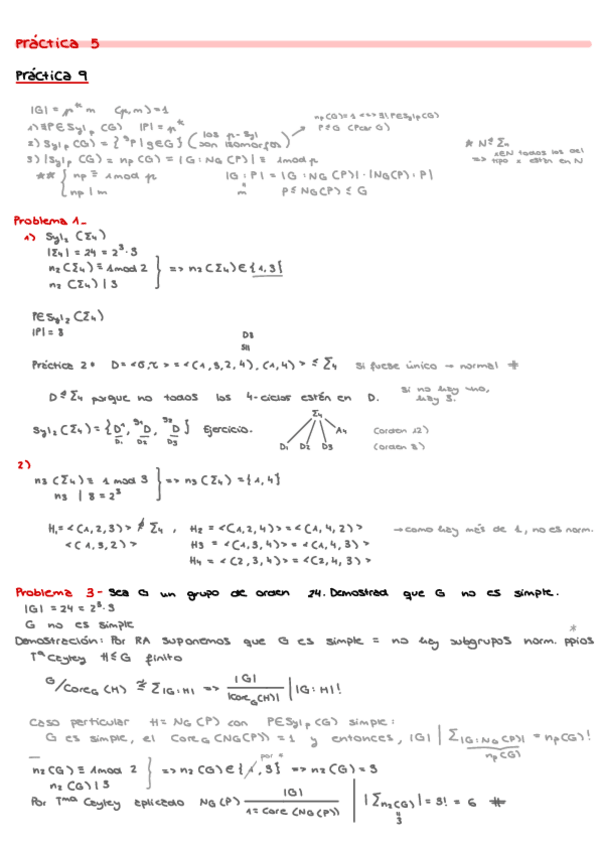 Práctica 5
Práctica 9
|G| = p^k m (p,m)=1
1) ∃P∈Syl_p (G) |P| = p^k
2) Syl_p (G) = { ^gP | g∈G } (los p-syl son isomorfos) n_p(G)=1 <=> ∃! P∈Syl_p(G) P⊴G (Por 2)
3) |Syl_p (G)| = n_p (G) = |G : N_G (P)| ≡ 1 mod p
** { n_p ≡ 1 mod p
n_p | m
|G : P| = |G : N_G (P)| · |N_G(P) : P|
m P≤ N_G(P) ≤ G
* N⊴Σ_n
x∈N todos los del
=> tipo x están en N
Problema 1_
1) Syl_2 (Σ_4)
|Σ_4| = 24 = 2^3·3
n_2 (Σ_4) ≡ 1 mod 2
n_2 (Σ_4) | 3 } => n_2 (Σ_4) ∈ {1,3}
P∈ Syl_2 (Σ_4)
|P| = 8
D8
Práctica 2: D = <σ,τ> = <(1,3,2,4), (1,4)> ≤ Σ_4 Si fuese único → normal #
D⋬Σ_4 porque no todos los 4-ciclos están en D. Si no hay uno, hay 3.
Syl_2 (Σ_4) = { D^1, ^{g1}D, ^{g2}D } Ejercicio.
D_1 D_2 D_3
Σ_4
D_1 D_2 D_3 A_4 (orden 12)
(orden 8)
2)
n_3 (Σ_4) ≡ 1 mod 3
n_3 | 8 = 2^3 } => n_3 (Σ_4) = {1,4}
H_1 = <(1,2,3)> ⋬ Σ_4 , H_2 = <(1,2,4)> = <(1,4,2)> → como hay más de 1, no es norm.
<(1,3,2)> H_3 = <(1,3,4)> = <(1,4,3)>
H_4 = <(2,3,4)> = <(2,4,3)>
Problema 3- Sea G un grupo de orden 24. Demostrad que G no es simple.
|G| = 24 = 2^3·3
G no es simple
Demostración: Por RA suponemos que G es simple = no hay subgrupos norm. ppios *
T^a Cayley H≤G finito
G/Core_G (H) ≅ Σ_|G:H| => |G| / |Core_G(H)| | |G:H|!
Caso particular H = N_G (P) con P∈Syl_p (G) simple:
G es simple, el Core_G (N_G(P)) = 1 y entonces, |G| | Σ_|G:N_G(P)| = n_p(G)!
n_p(G)
n_2 (G) ≡ 1 mod 2
n_2 (G) | 3 } => n_2 (G) ∈ {1,3} => n_2 (G) = 3
por *
Por T^ma Cayley aplicado N_G (P) |G| / 1 = Core (N_G(P)) | |Σ_{n_2(G)}| = 3! = 6 #
3